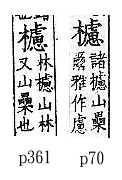 櫖
林櫖山林
又山櫐也
櫖
諸櫖山櫐
爾雅作慮
p361
p70